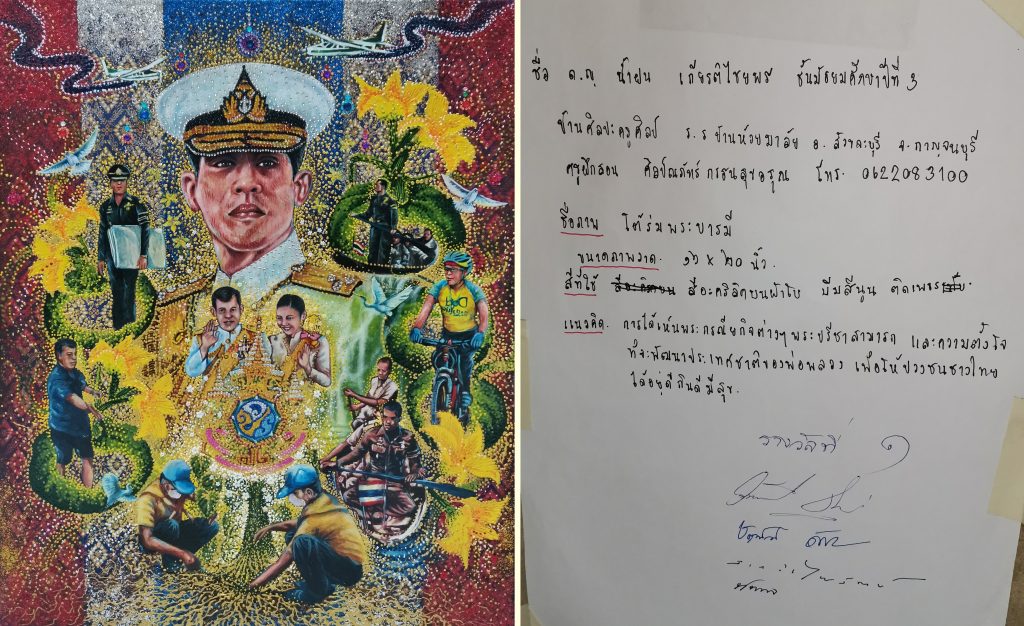 ชื่อ ด.ญ น้ำฝน เกียรติไชยพร ชั้นมัธยมศึกษาปีที่ 3
บ้านศิลปะครูศิลป์ ร.ร บ้านห้วยมาลัย อ. สังขละบุรี จ. กาญจนบุรี
ครูฝึกสอน ศิลป์ณภัทร์ กรธนสุขอรุณ โทร. 0622083100
ชื่อภาพ ใต้ร่มพระบารมี
ขนาดภาพวาด. ๑๖ x ๒๐ นิ้ว.
สีที่ใช้ สีอะคริลิคบนผ้าใบ บีบสีนูน ติดเพชร
แนวคิด. การได้เห็นพระกรณียกิจต่างๆพระปรีชาสามารถ และความตั้งใจ
ที่จะพัฒนาประเทศชาติของพ่อหลวง เพื่อให้ปวงชนชาวไทย
ได้อยู่ดีกินดีมีสุข.
รางวัลที่ ๑